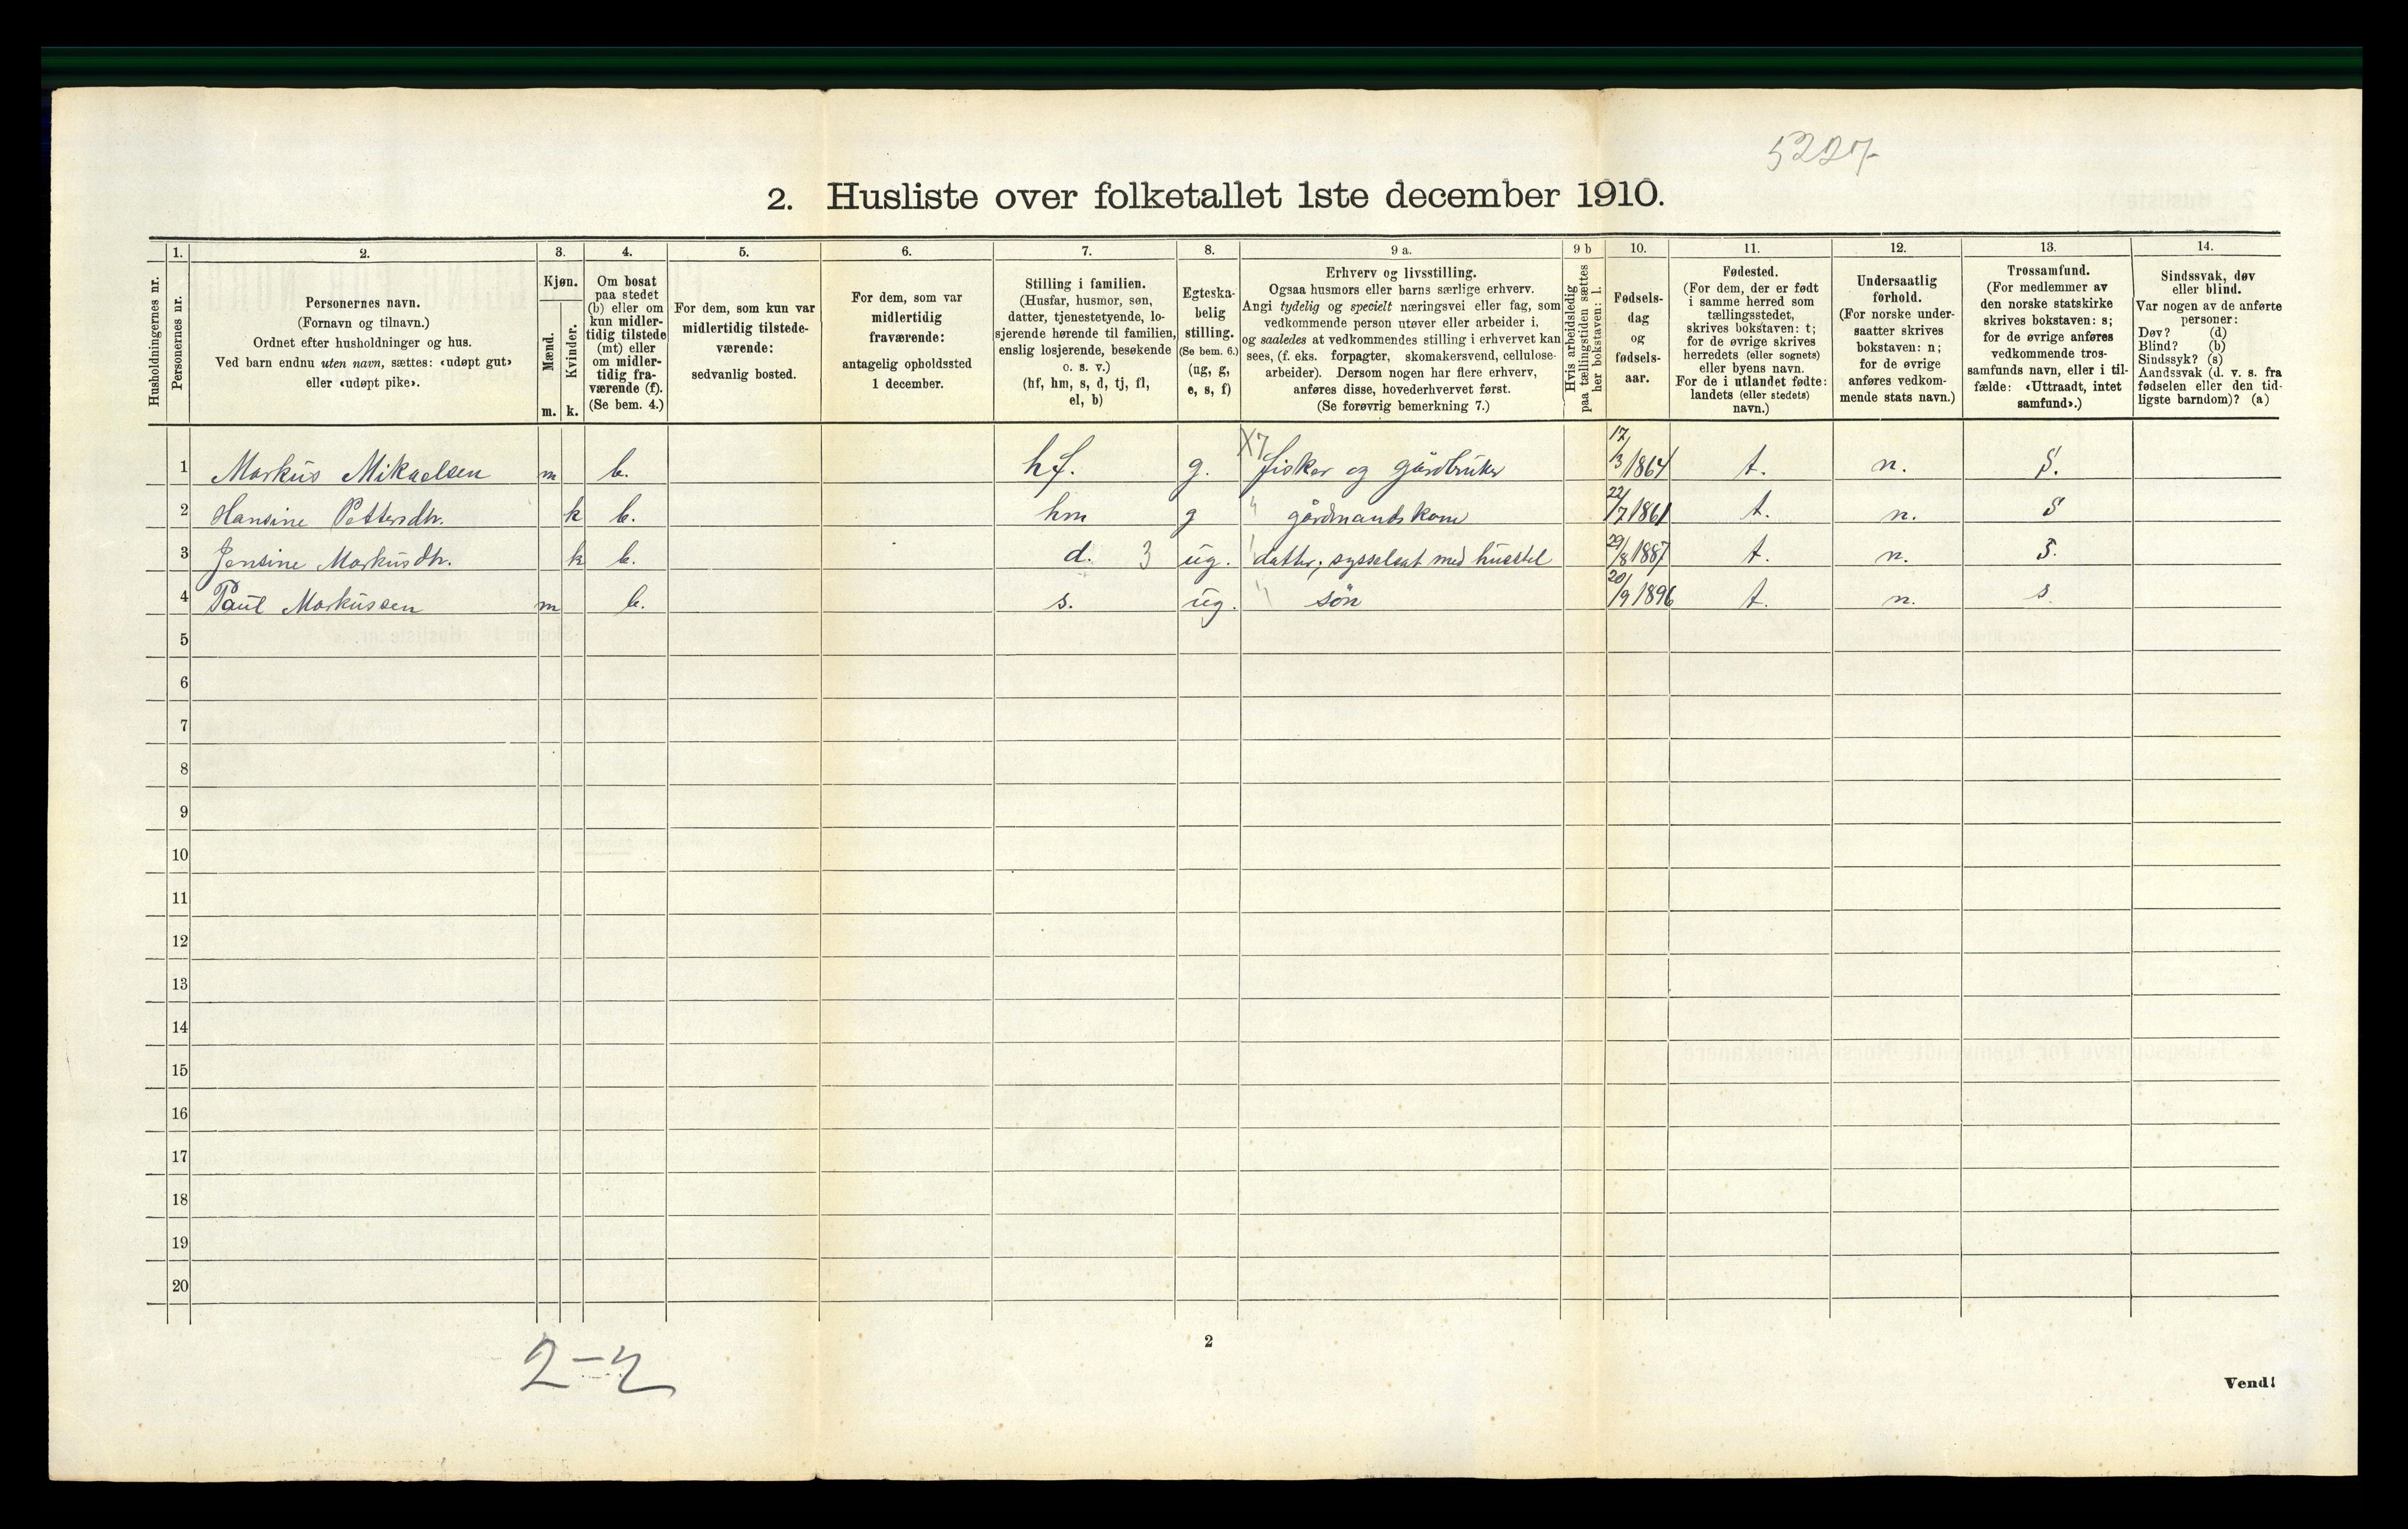 5227
2. Husliste over folketallet 1ste december 1910.
1. 2. 3. 4. 5. 6. 7. 8. 9 a. 9 b 10. 11. 12. 13. 14.
Husholdningernes nr.
Personernes nr.
Personernes navn.
(Fornavn og tilnavn.)
Ordnet efter husholdninger og hus.
Ved barn endnu uten navn, sættes: «udøpt gut»
eller «udøpt pike».
Kjøn.
Mænd.
Kvinder.
m. k.
Om bosat
paa stedet
(b) eller om
kun midler-
tidig tilstede
(mt) eller
om midler-
tidig fra-
værende (f).
(Se bem. 4.)
For dem, som kun var
midlertidig tilstede-
værende:
sedvanlig bosted.
For dem, som var
midlertidig
fraværende:
antagelig opholdssted
1 december.
Stilling i familien.
(Husfar, husmor, søn,
datter, tjenestetyende, lo-
sjerende hørende til familien,
enslig losjerende, besøkende
o. s. v.)
(hf, hm, s, d, tj, fl,
el, b)
Egteska-
belig
stilling.
(Se bem. 6.)
(ug, g,
e, s, f)
Erhverv og livsstilling.
Ogsaa husmors eller barns særlige erhverv.
Angi tydelig og specielt næringsvei eller fag, som
vedkommende person utøver eller arbeider i,
og saaledes at vedkommendes stilling i erhvervet kan
sees, (f. eks. forpagter, skomakersvend, cellulose-
arbeider). Dersom nogen har flere erhverv,
anføres disse, hovederhvervet først.
(Se forøvrig bemerkning 7.)
Hvis arbeidsledig
paa tællingstiden sættes
her bokstaven: l.
Fødsels-
dag
og
fødsels-
aar.
Fødested.
(For dem, der er født
i samme herred som
tællingsstedet,
skrives bokstaven: t;
for de øvrige skrives
herredets (eller sognets)
eller byens navn.
For de i utlandet fødte:
landets (eller stedets)
navn.)
Undersaatlig
forhold.
(For norske under-
saatter skrives
bokstaven: n;
for de øvrige
anføres vedkom-
mende stats navn.)
Trossamfund.
(For medlemmer av
den norske statskirke
skrives bokstaven: s;
for de øvrige anføres
vedkommende tros-
samfunds navn, eller i til-
fælde: «Uttraadt, intet
samfund».)
Sindssvak, døv
eller blind.
Var nogen av de anførte
personer:
Døv? (d)
Blind? (b)
Sindssyk? (s)
Aandssvak (d. v. s. fra
fødselen eller den tid-
ligste barndom)? (a)
1 Markus Mikaelsen m b. hf. g. X7 fisker og gårdbruker 17/3 1864 t. n. S.
2 Hansine Pettersdtr. k b. hm g " gårdmandskone 22/7 1861 t. n. S
3 Jensine Markusdtr. k b. d. 3 ug. datter, sysselsat med husstel 29/8 1887 t. n. S.
4 Paul Markussen m b. s. ug. " søn 20/9 1896 t. n. s.
5
6
7
8
9
10
11
12
13
14
15
16
17
18
19
20
2-2
2
Vend!